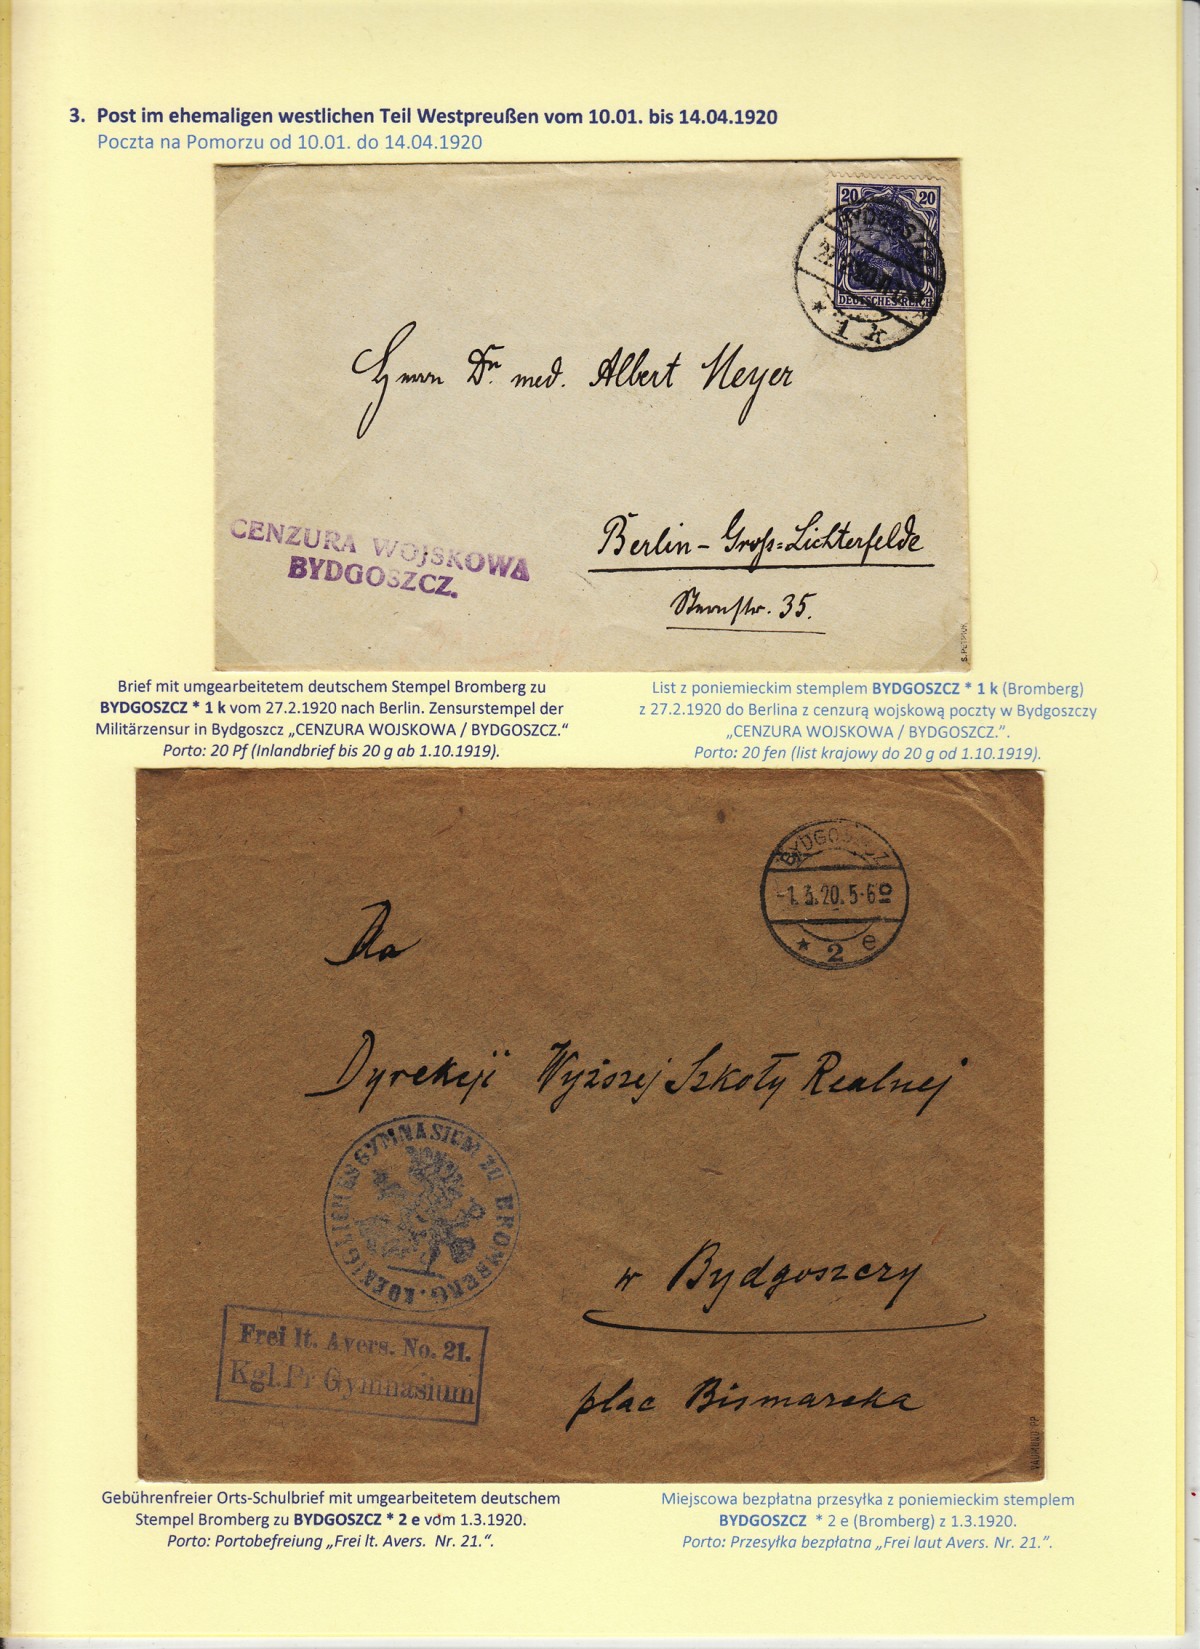 3. Post im ehemaligen westlichen Teil Westpreußen vom 10.01. bis 14.04.1920
Poczta na Pomorzu od 10.01. do 14.04.1920
20 20
DEUTSCHES REICH
BYDGOSZCZ
* 1 k
Herrn Dr. med. Albert Meyer
Berlin - Gross=Lichterfelde
Sternstr. 35.
CENZURA WOJSKOWA
BYDGOSZCZ.
Bromberg
S. PETRIUK
Brief mit umgearbeitetem deutschem Stempel Bromberg zu
BYDGOSZCZ * 1 k vom 27.2.1920 nach Berlin. Zensurstempel der
Militärzensur in Bydgoszcz „CENZURA WOJSKOWA / BYDGOSZCZ.“
Porto: 20 Pf (Inlandbrief bis 20 g ab 1.10.1919).
List z poniemieckim stemplem BYDGOSZCZ * 1 k (Bromberg)
z 27.2.1920 do Berlina z cenzurą wojskową poczty w Bydgoszczy
„CENZURA WOJSKOWA / BYDGOSZCZ.”.
Porto: 20 fen (list krajowy do 20 g od 1.10.1919).
BYDGOSZCZ
-1.3.20. 5-6
* 2 e
Do
Dyrekcji Wyższej Szkoły Realnej
w Bydgoszczy
plac Bismarcka
KOENIGLICHES GYMNASIUM ZU BROMBERG.
Frei lt. Avers. No. 21.
Kgl. Pr Gymnasium
Gebührenfreier Orts-Schulbrief mit umgearbeitetem deutschem
Stempel Bromberg zu BYDGOSZCZ * 2 e vom 1.3.1920.
Porto: Portobefreiung „Frei lt. Avers. Nr. 21.“.
Miejscowa bezpłatna przesyłka z poniemieckim stemplem
BYDGOSZCZ * 2 e (Bromberg) z 1.3.1920.
Porto: Przesyłka bezpłatna „Frei laut Avers. Nr. 21.”.